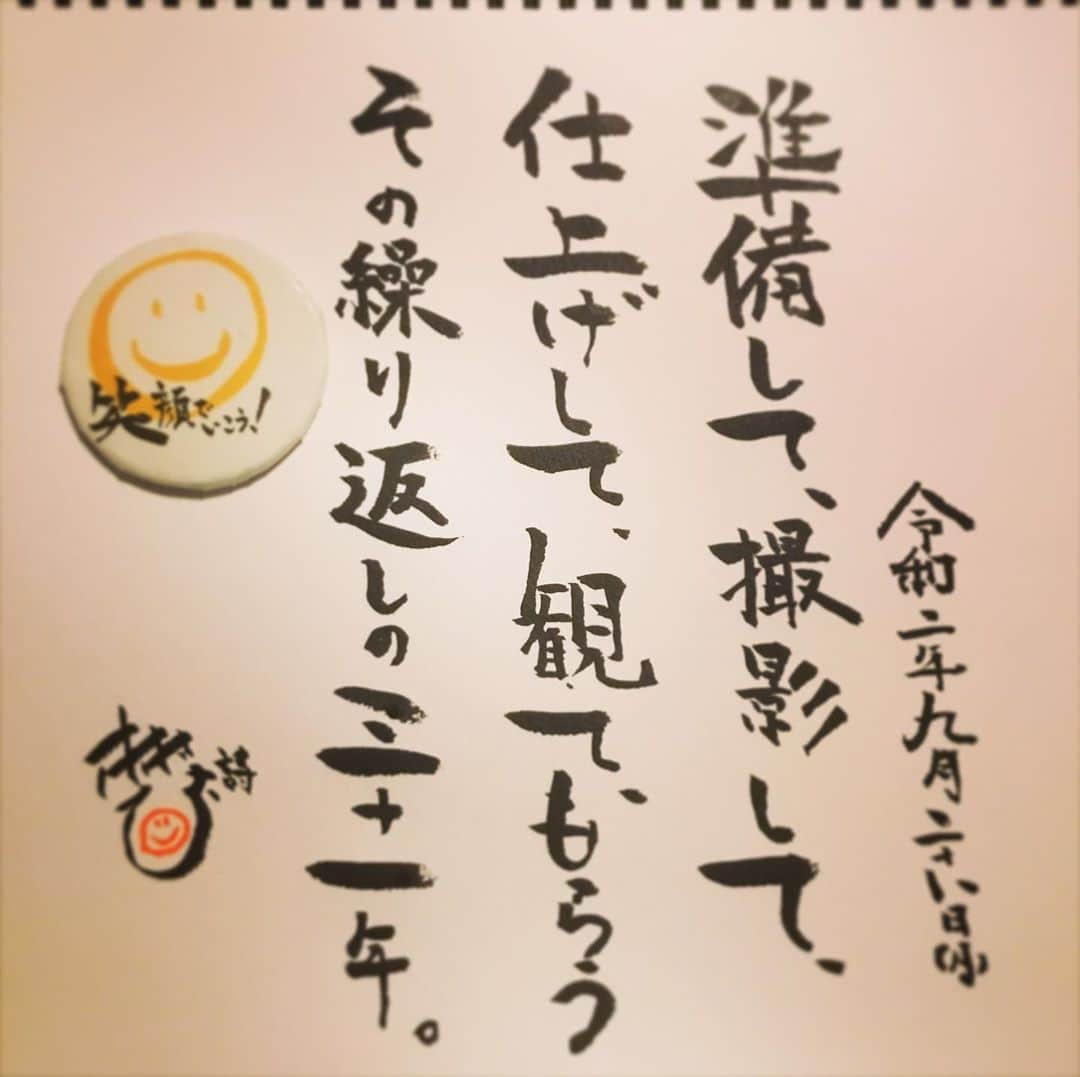 令和二年九月二十八日(月)
準備して、撮影して、
仕上げして、観て、もらう
その繰り返しの三十一年。
笑顔でいこう!
詩